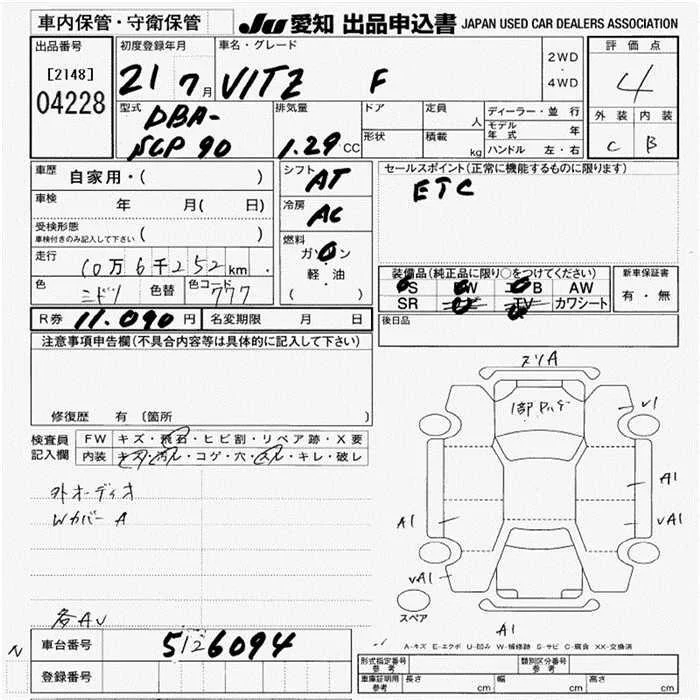 車内保管・守衛保管 JU 愛知 出品申込書 JAPAN USED CAR DEALERS ASSOCIATION
出品番号 初度登録年月 車名・グレード 2WD・4WD 評価点
[2148] 21 7月 VITZ F 4
04228
型式 排気量 ドア 定員 人 ディーラー・並行 外装 内装
DBA- モデル年式 年
SCP90 1.29 CC 形状 積載 kg ハンドル 左・右 C B
車歴 自家用・( ) シフト AT セールスポイント(正常に機能するものに限ります)
車検 年 月( 日) 冷房 AC ETC
受検形態 ( )
車検付きのみ記入して下さい
燃料 ガソリン
走行 10万6千252km 軽・油 装備品(純品に限り○をつけてください) 新車保証書
色 ミドリ 色替 色コード 777 ( ) PS PW エアB AW 有・無
SR ナビ TV カワシート
R券 11,090円 名変期限 月 日 後日品
注意事項申告欄(不具合内容等は具体的に記入して下さい)
スリA
1部
修復歴 有 〔箇所
検査員 FW キズ・飛石・ヒビ割・リペア跡・X要
記入欄 内装 キズ・汚レ・コゲ・穴・スレ・キレ・破レ
外オーディオ
Wカバー A
V1
A1
A1
vA1
vA1
スペア
A1
各AV
A-キズ E-エクボ U-凹み W-補修跡 S-サビ C-腐食 XX-交換済
N 車台番号 5126094
登録番号
形式指定番号 参考 類別区分番号 参考
車庫証明用 参考 長さ cm 幅 cm 高さ cm